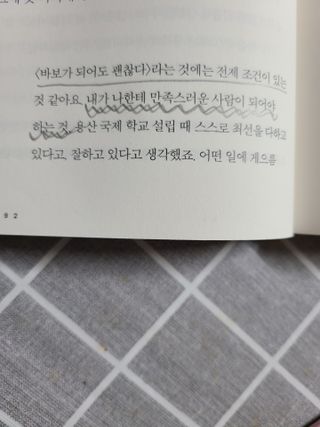 〈바보가 되어도 괜찮다〉라는 것에는 전제 조건이 있는
것 같아요. 내가 나한테 만족스러운 사람이 되어야
하는 것. 용산 국제 학교 설립 때 스스로 최선을 다하고
있다고, 잘하고 있다고 생각했죠. 어떤 일에 게으름
92